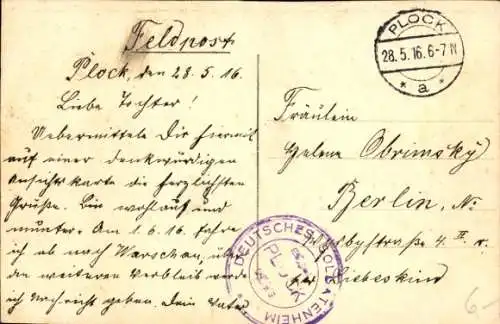 Feldpost
Plock, den 28.5.16.
Liebe Tochter!
Uebermittele Dir hiermit
auf einer denkwürdigen
Ansichtskarte die herzlichsten
Grüße. Bin wohlauf und
munter. Am 1.6.16 fahre
ich ab nach Warschau, über
den weiteren Verbleib werde
ich Nachricht geben. Dein Vater
PLOCK
28.5.16.6-7N
* a *
Fräulein
Helene Obrimsky
Berlin, N.
straße 4. II r.
bei Liebeskind
DEUTSCHES SOLDATENHEIM
PLOCK
6-